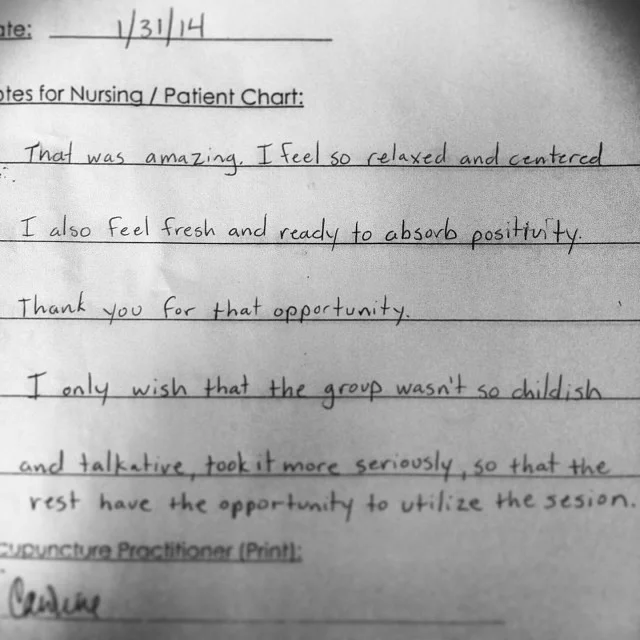 ate: 1/31/14
otes for Nursing / Patient Chart:
That was amazing. I feel so relaxed and centered
I also feel fresh and ready to absorb positivity.
Thank you for that opportunity.
I only wish that the group wasn't so childish
and talkative, took it more seriously, so that the
rest have the opportunity to utilize the sesion.
cupuncture Practitioner (Print):